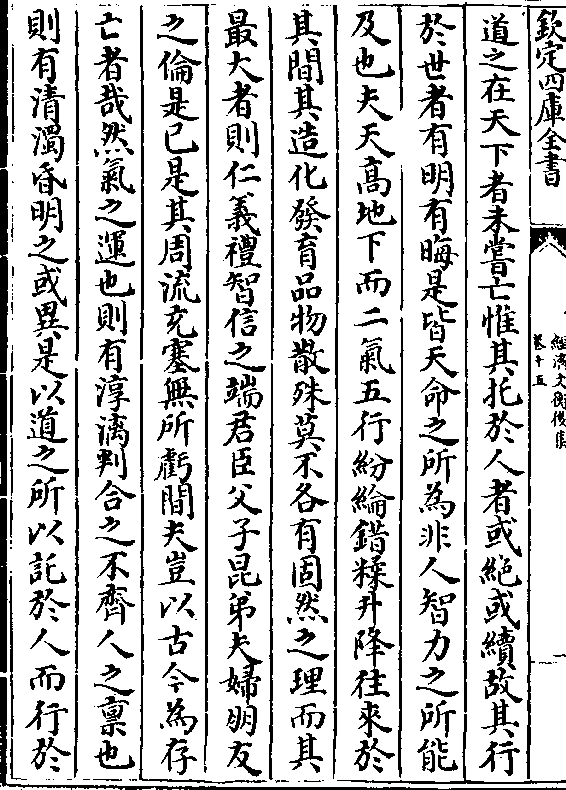 欽定四庫全書
經濟文衡後集
卷十五
道之在天下者未嘗亡惟其托於人者或絶或續故其行
於世者有明有晦是皆天命之所為非人智力之所能
及也夫天髙地下而二氣五行紛綸錯糅升降往來於
其間其造化發育品物散殊莫不各有固然之理而其
最大者則仁義禮智信之端君臣父子昆弟夫婦朋友
之倫是已是其周流充塞無所虧間夫豈以古今為存
亡者哉然氣之運也則有淳漓判合之不齊人之禀也
則有清濁昏明之或異是以道之所以託於人而行於